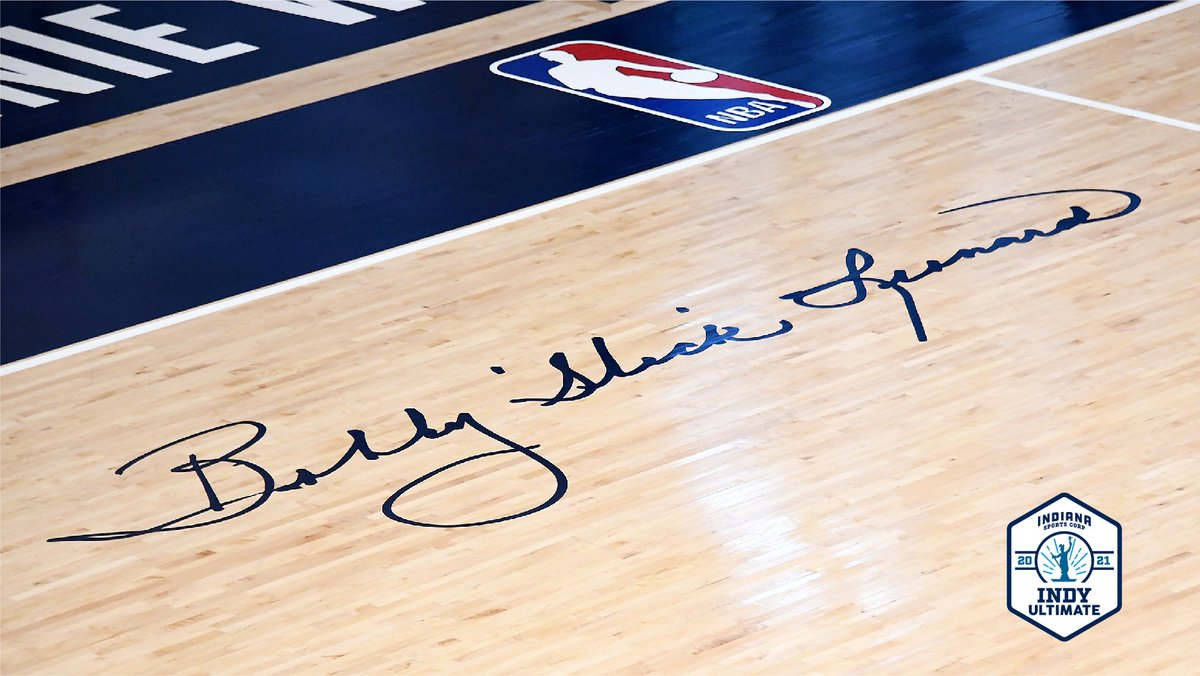 NIE W
NBA
Bobby "Slick" Leonard
INDIANA
SPORTS CORP
2021
INDY
ULTIMATE